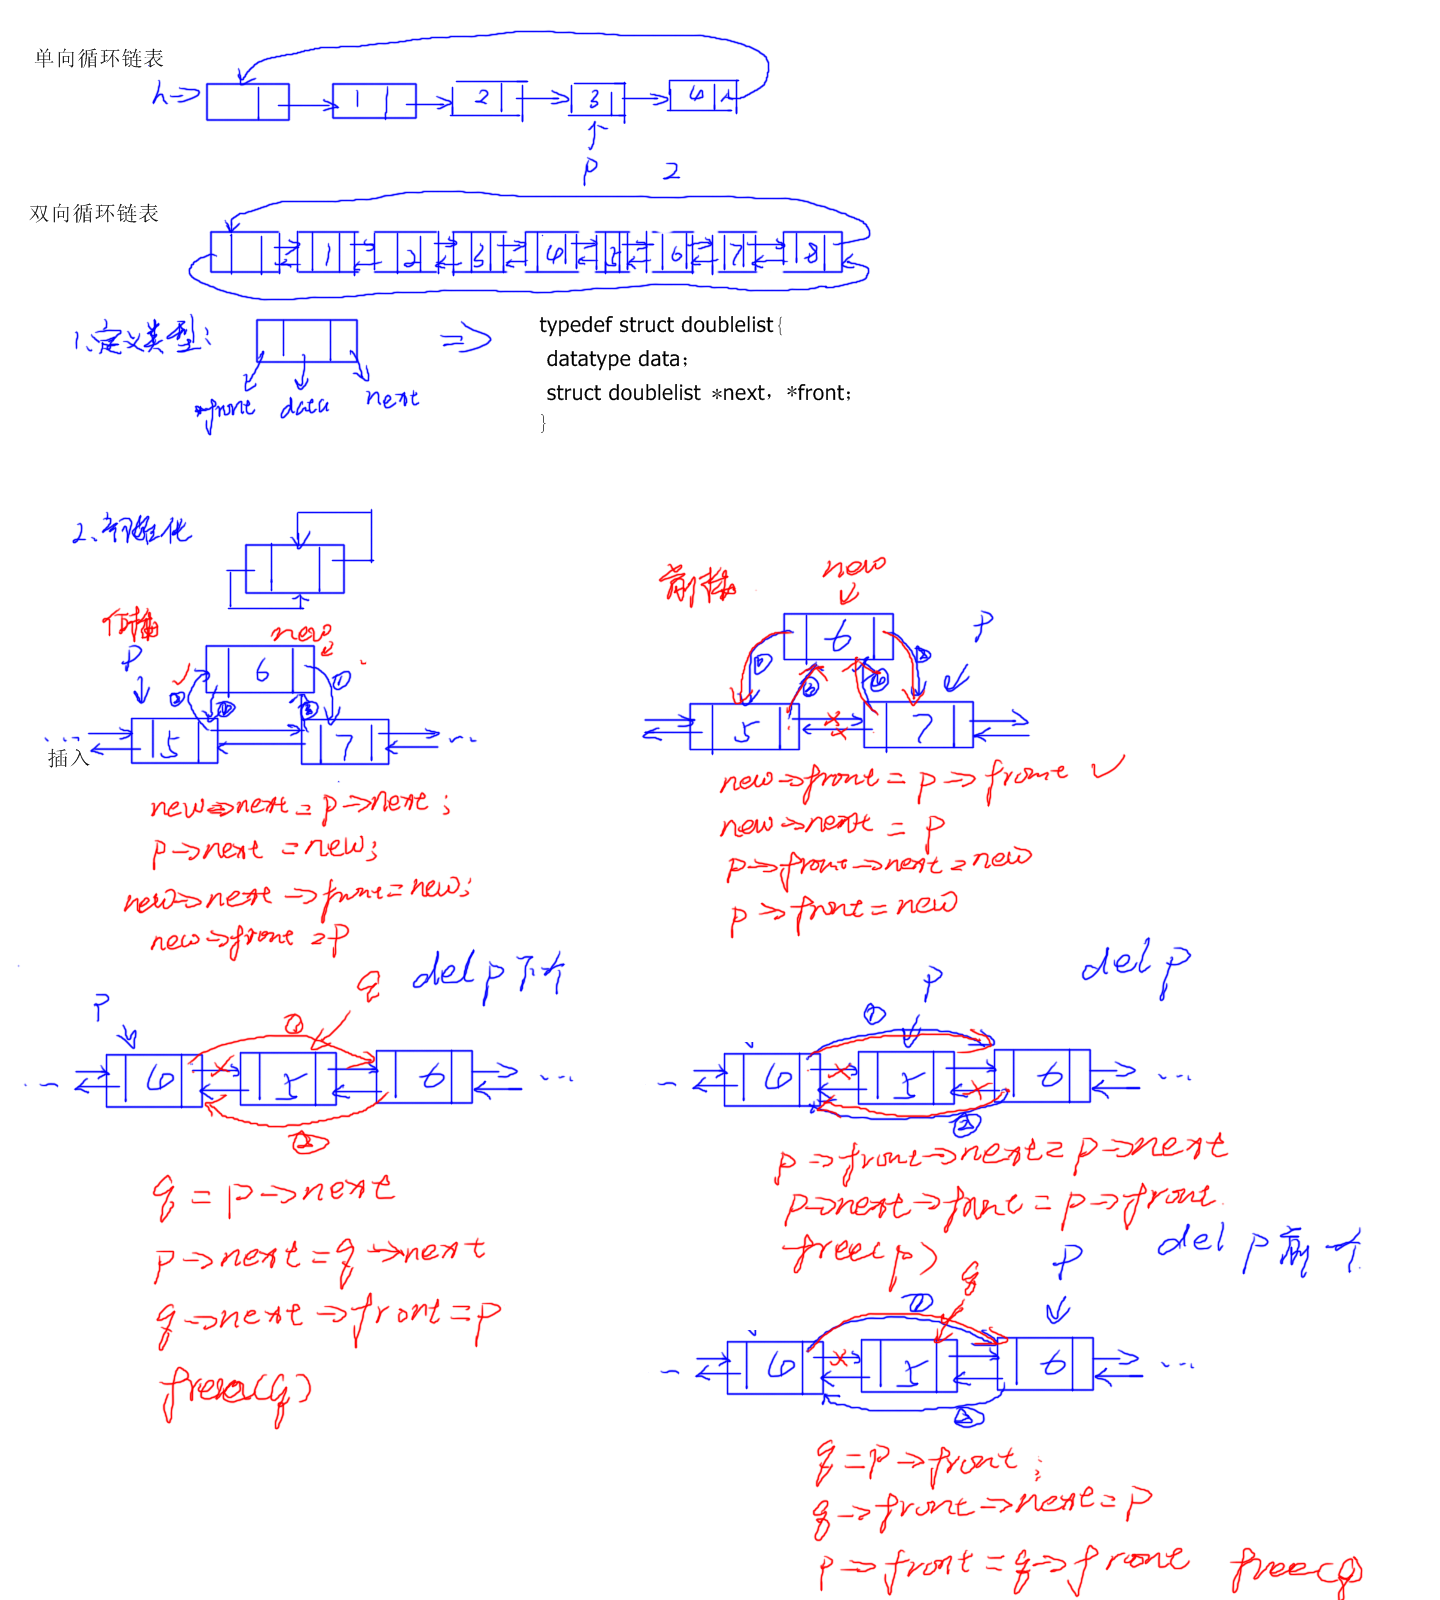 单向循环链表
h 1 2 3 4
p 2
双向循环链表
1 2 3 4 5 6 7 8
1、定义类型: typedef struct doublelist{
datatype data;
*front data next struct doublelist *next, *front;
}
2、初始化
后插 new
p 6
5 7
插入
new->next = p->next;
p->next = new;
new->next->front = new;
new->front = p
前插 new
6 p
5 7
new->front = p->front ✓
new->next = p
p->front->next = new
p->front = new
del p 下一个
p q
① 6 5 6 ...
②
q = p->next
p->next = q->next
q->next->front = p
free(q)
del p
p
① 6 5 6 ...
②
p->front->next = p->next
p->next->front = p->front
free(p)
del p 前一个
q p
① 6 5 6 ...
②
q = p->front;
q->front->next = p
p->front = q->front free(q)